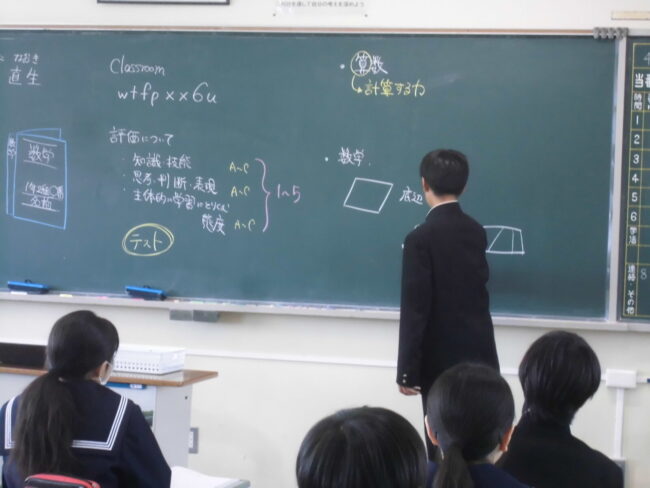 直生
Classroom
wtfpxx6u
評価について
・知識 技能 A〜C
・思考・判断・表現 A〜C
・主体的に学習にとりくむ
態度 A〜C
1〜5
テスト
数学
名前
・算数
計算する力
・数学
底辺
時間
1
2
3
4
5
6
学活
連絡・その他
8